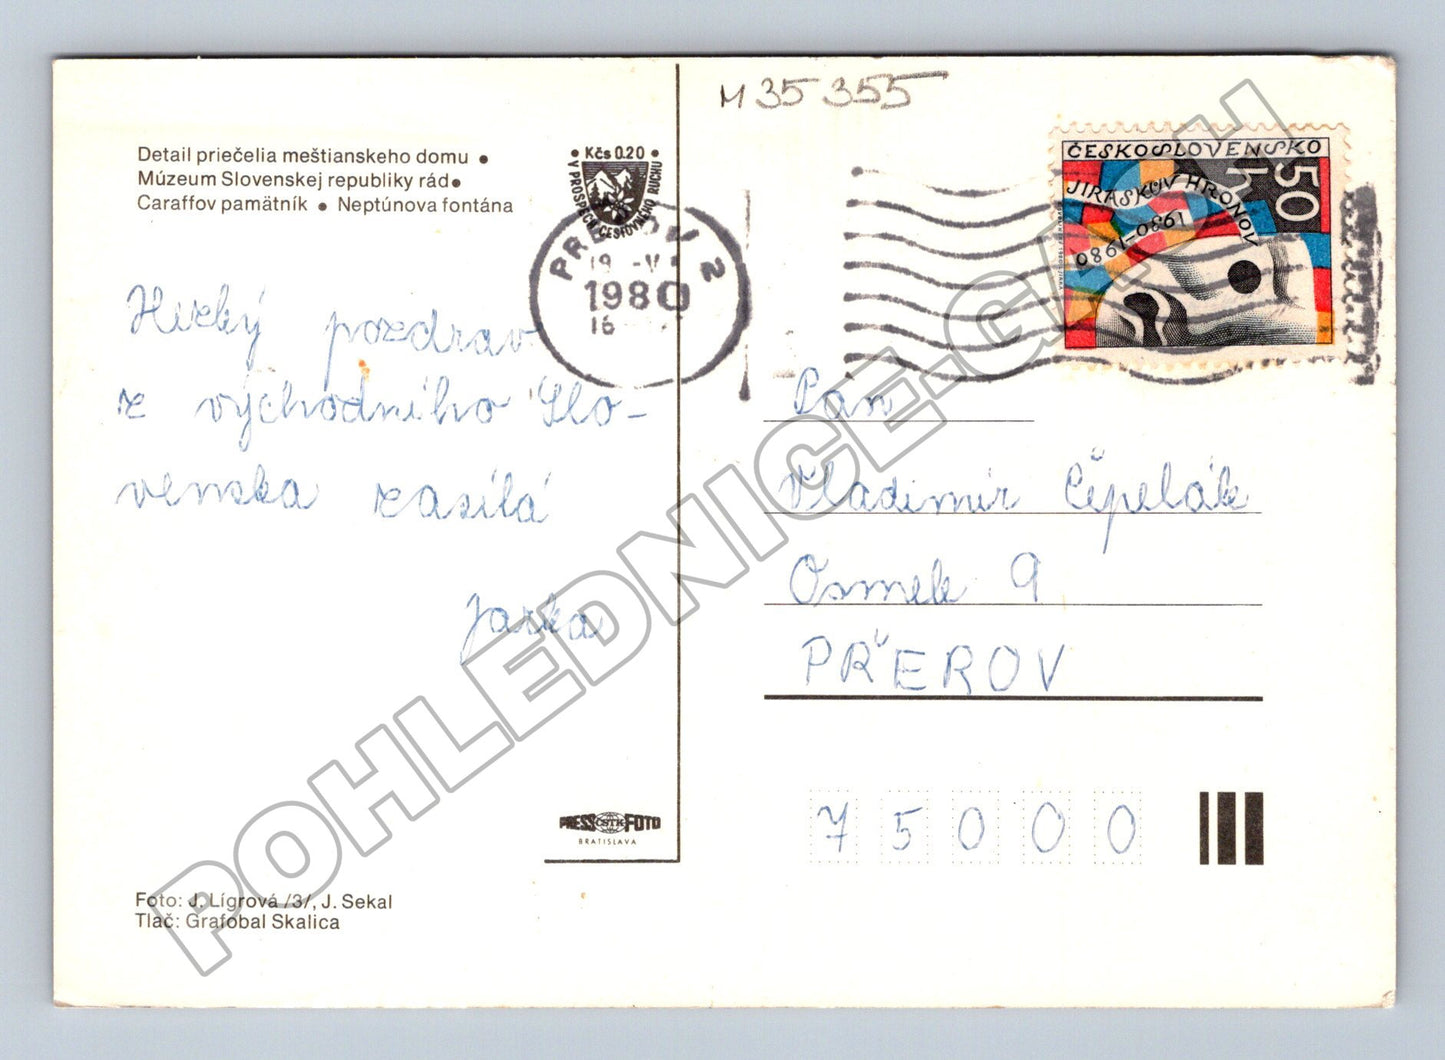 M 35 355
Detail priečelia meštianskeho domu •
Múzeum Slovenskej republiky rád •
Caraffov pamätník • Neptúnova fontána
• Kčs 0.20 •
V PROSPECH CESTOVNÉHO RUCHU
PREŠOV 2
19 -V
1980
16
ČESKOSLOVENSKO
50 h
JIRÁSKŮV HRONOV
1980–1980
Hezký pozdrav
z východního Slo-
venska zasílá
Jarka
Pan
Vladimír Čepelák
Osmek 9
PŘEROV
75000
PRESS ČSTK FOTO
BRATISLAVA
Foto: J. Lígrová /3/, J. Sekal
Tlač: Grafobal Skalica
POHLEDNICE-CACH